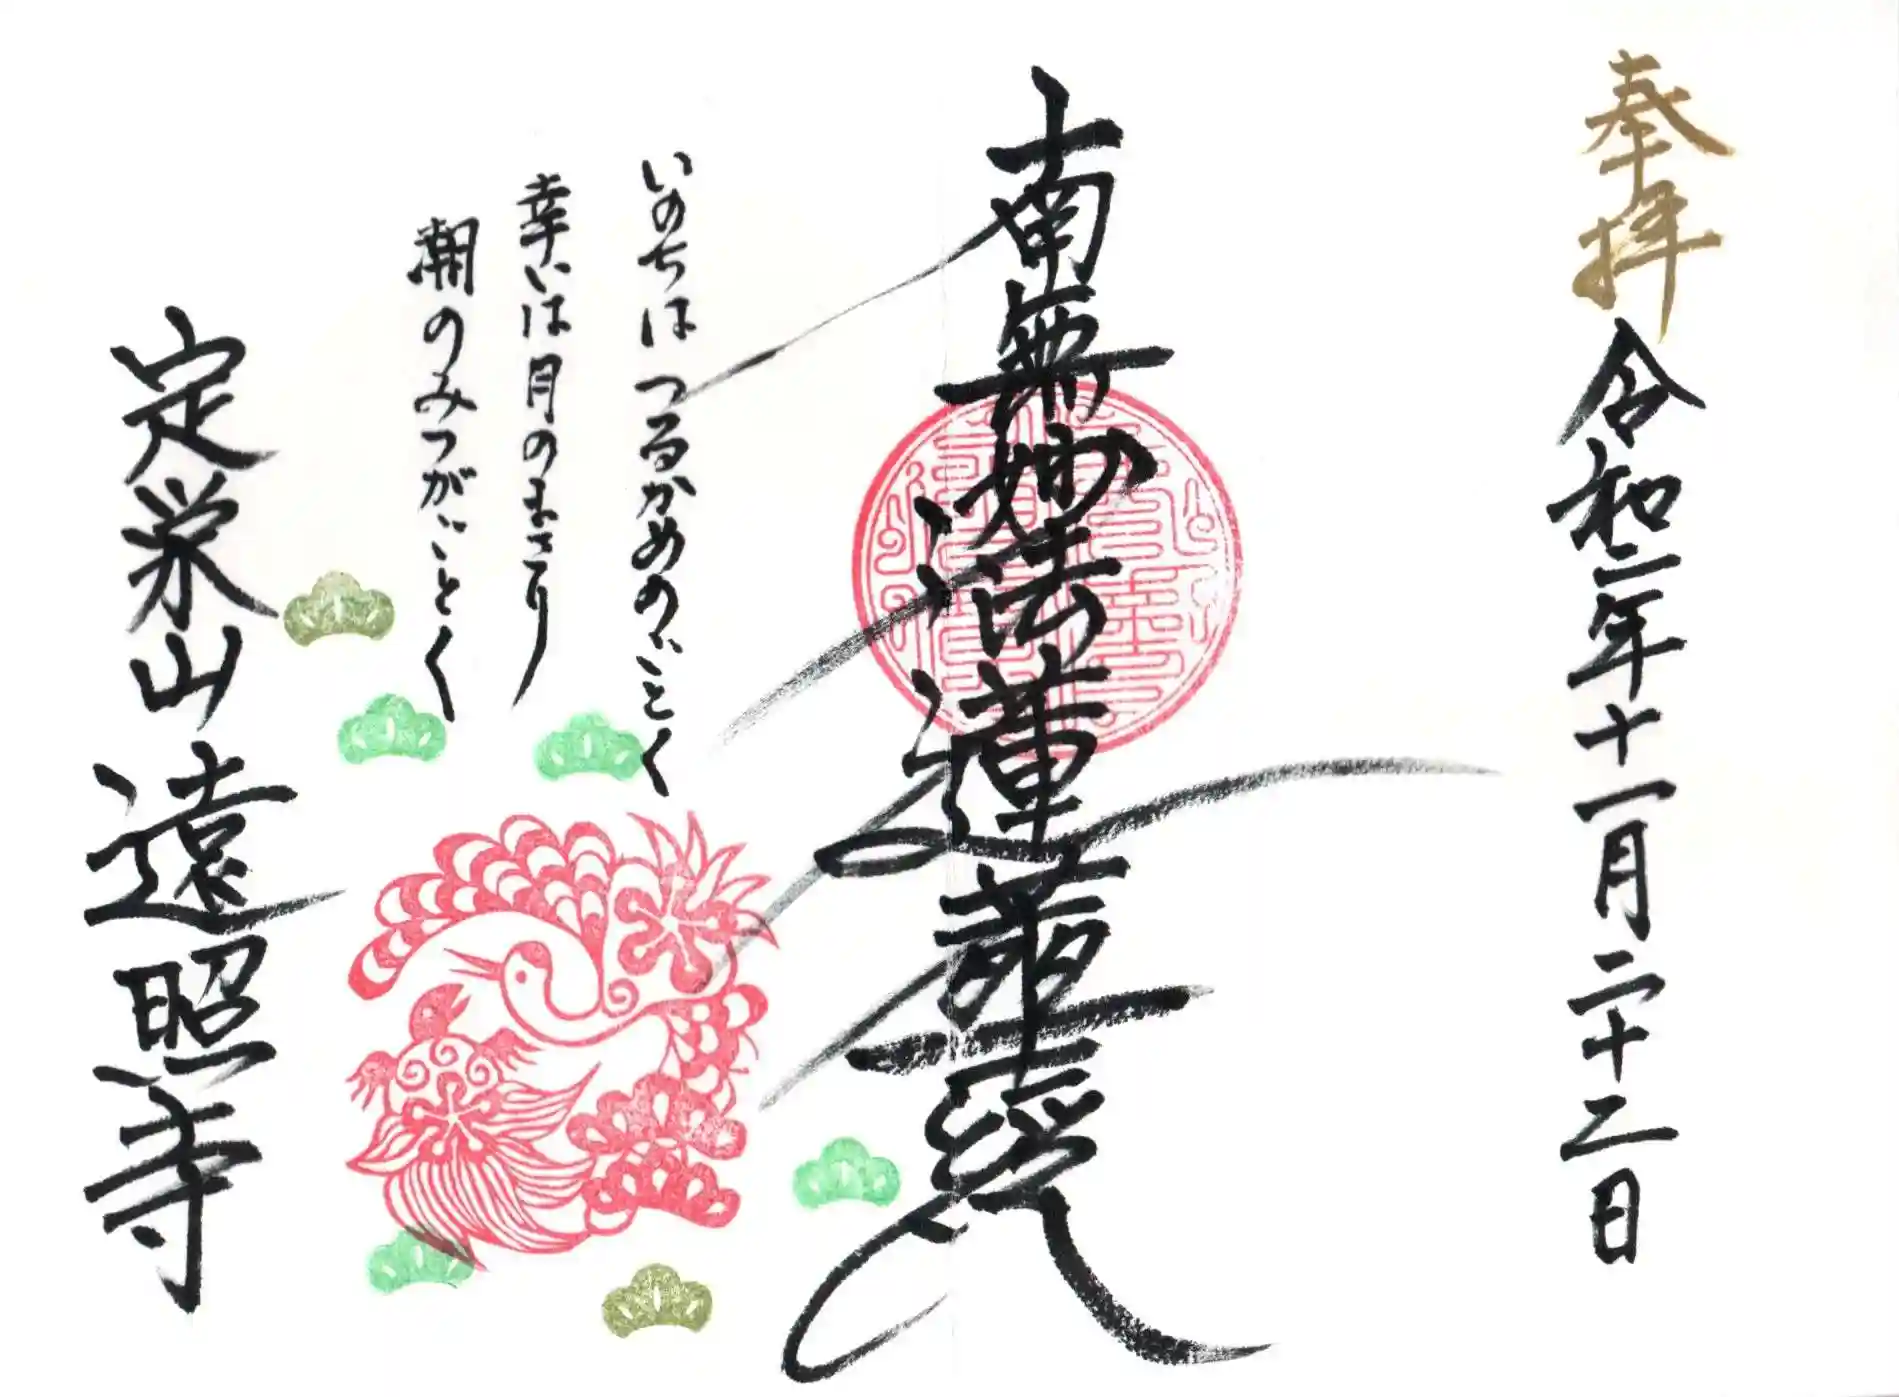 奉拝 令和二年十一月二十三日
南無妙法蓮華経
いのちはつるかめのごとく
幸いは月のまさり
潮のみつがごとく
定栄山 遠照寺